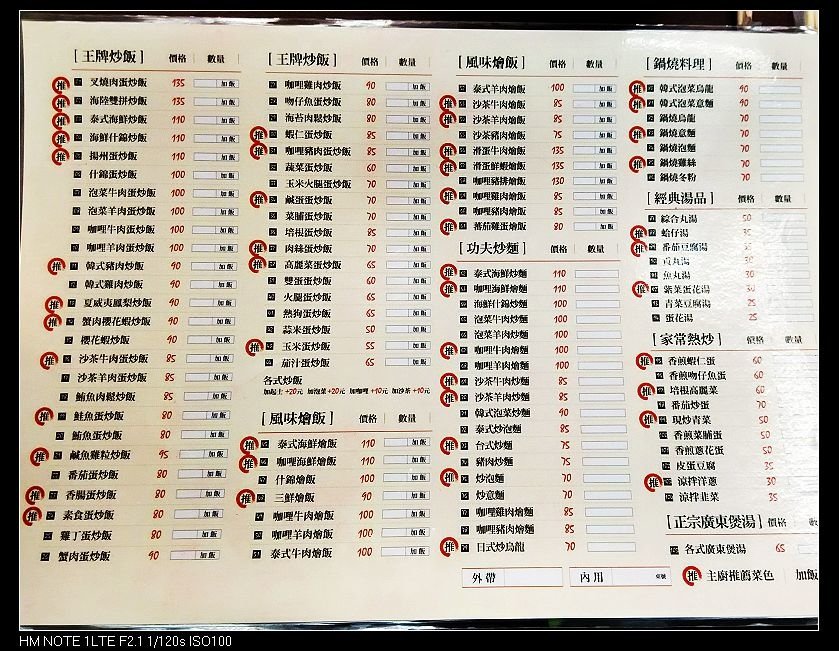 [王牌炒飯] 價格 數量
叉燒肉蛋炒飯 135 加飯
海陸雙拼炒飯 135 加飯
泰式海鮮炒飯 110 加飯
海鮮什錦炒飯 110 加飯
揚州蛋炒飯 110 加飯
什錦蛋炒飯 100 加飯
泡菜牛肉蛋炒飯 100 加飯
泡菜羊肉蛋炒飯 100 加飯
咖哩牛肉蛋炒飯 100 加飯
咖哩羊肉蛋炒飯 100 加飯
韓式豬肉炒飯 90 加飯
韓式雞肉炒飯 90 加飯
夏威夷鳳梨炒飯 90 加飯
蟹肉櫻花蝦炒飯 90 加飯
櫻花蝦炒飯 90 加飯
沙茶牛肉蛋炒飯 85 加飯
沙茶羊肉蛋炒飯 85 加飯
鮪魚肉鬆炒飯 85 加飯
鮭魚蛋炒飯 80 加飯
鮪魚蛋炒飯 80 加飯
鹹魚雞粒炒飯 95 加飯
番茄蛋炒飯 80 加飯
香腸蛋炒飯 80 加飯
素食蛋炒飯 80 加飯
雞丁蛋炒飯 80 加飯
蟹肉蛋炒飯 90 加飯
[王牌炒飯] 價格 數量
咖哩雞肉炒飯 90 加飯
吻仔魚蛋炒飯 80 加飯
海苔肉鬆炒飯 80 加飯
蝦仁蛋炒飯 85 加飯
咖哩豬肉蛋炒飯 85 加飯
蔬菜蛋炒飯 60 加飯
玉米火腿蛋炒飯 70 加飯
鹹蛋蛋炒飯 70 加飯
菜脯蛋炒飯 70 加飯
培根蛋炒飯 85 加飯
肉絲蛋炒飯 70 加飯
高麗菜蛋炒飯 65 加飯
雙蛋蛋炒飯 60 加飯
火腿蛋炒飯 65 加飯
熱狗蛋炒飯 60 加飯
蒜米蛋炒飯 50 加飯
玉米蛋炒飯 55 加飯
茄汁蛋炒飯 65 加飯
各式炒飯
加起士+20元 加泡菜+20元 加咖哩+10元 加沙茶+10元
[風味燴飯] 價格 數量
泰式海鮮燴飯 110 加飯
咖哩海鮮燴飯 110 加飯
什錦燴飯 100 加飯
三鮮燴飯 90 加飯
咖哩牛肉燴飯 100 加飯
咖哩羊肉燴飯 100 加飯
泰式牛肉燴飯 100 加飯
[風味燴飯] 價格 數量
泰式羊肉燴飯 100 加飯
沙茶牛肉燴飯 85 加飯
沙茶羊肉燴飯 85 加飯
沙茶豬肉燴飯 75 加飯
滑蛋牛肉燴飯 135 加飯
滑蛋鮮蝦燴飯 135 加飯
咖哩豬排燴飯 130 加飯
咖哩雞肉燴飯 85 加飯
咖哩豬肉燴飯 85 加飯
蕃茄雞蛋燴飯 80 加飯
[功夫炒麵] 價格 數量
泰式海鮮炒麵 110
咖哩海鮮炒麵 110
海鮮什錦炒麵 100
泡菜牛肉炒麵 100
泡菜羊肉炒麵 100
咖哩牛肉炒麵 100
咖哩羊肉炒麵 100
沙茶牛肉炒麵 85
沙茶羊肉炒麵 85
韓式泡菜炒麵 90
泰式炒泡麵 80
台式炒麵 75
豬肉炒麵 75
炒泡麵 70
炒意麵 70
咖哩雞肉燴麵 85
咖哩豬肉燴麵 85
日式炒烏龍 70
外帶 內用 桌號
[鍋燒料理] 價格 數量
韓式泡菜烏龍 90
韓式泡菜意麵 90
鍋燒烏龍 70
鍋燒意麵 70
鍋燒泡麵 70
鍋燒雞絲 70
鍋燒冬粉 70
[經典湯品] 價格 數量
綜合丸湯 50
蛤仔湯
番茄豆腐湯
貢丸湯 30
魚丸湯 30
紫菜蛋花湯 30
青菜豆腐湯 25
蛋花湯 25
[家常熱炒] 價格 數量
香煎蝦仁蛋 60
香煎吻仔魚蛋 60
培根高麗菜 60
番茄炒蛋 70
現炒青菜 50
香煎菜脯蛋 50
香煎蔥花蛋 50
皮蛋豆腐 35
涼拌洋蔥 30
涼拌韭菜 35
[正宗廣東煲湯] 價格 數
各式廣東煲湯 65
推 主廚推薦菜色 加飯
HM NOTE 1LTE F2.1 1/120s ISO100